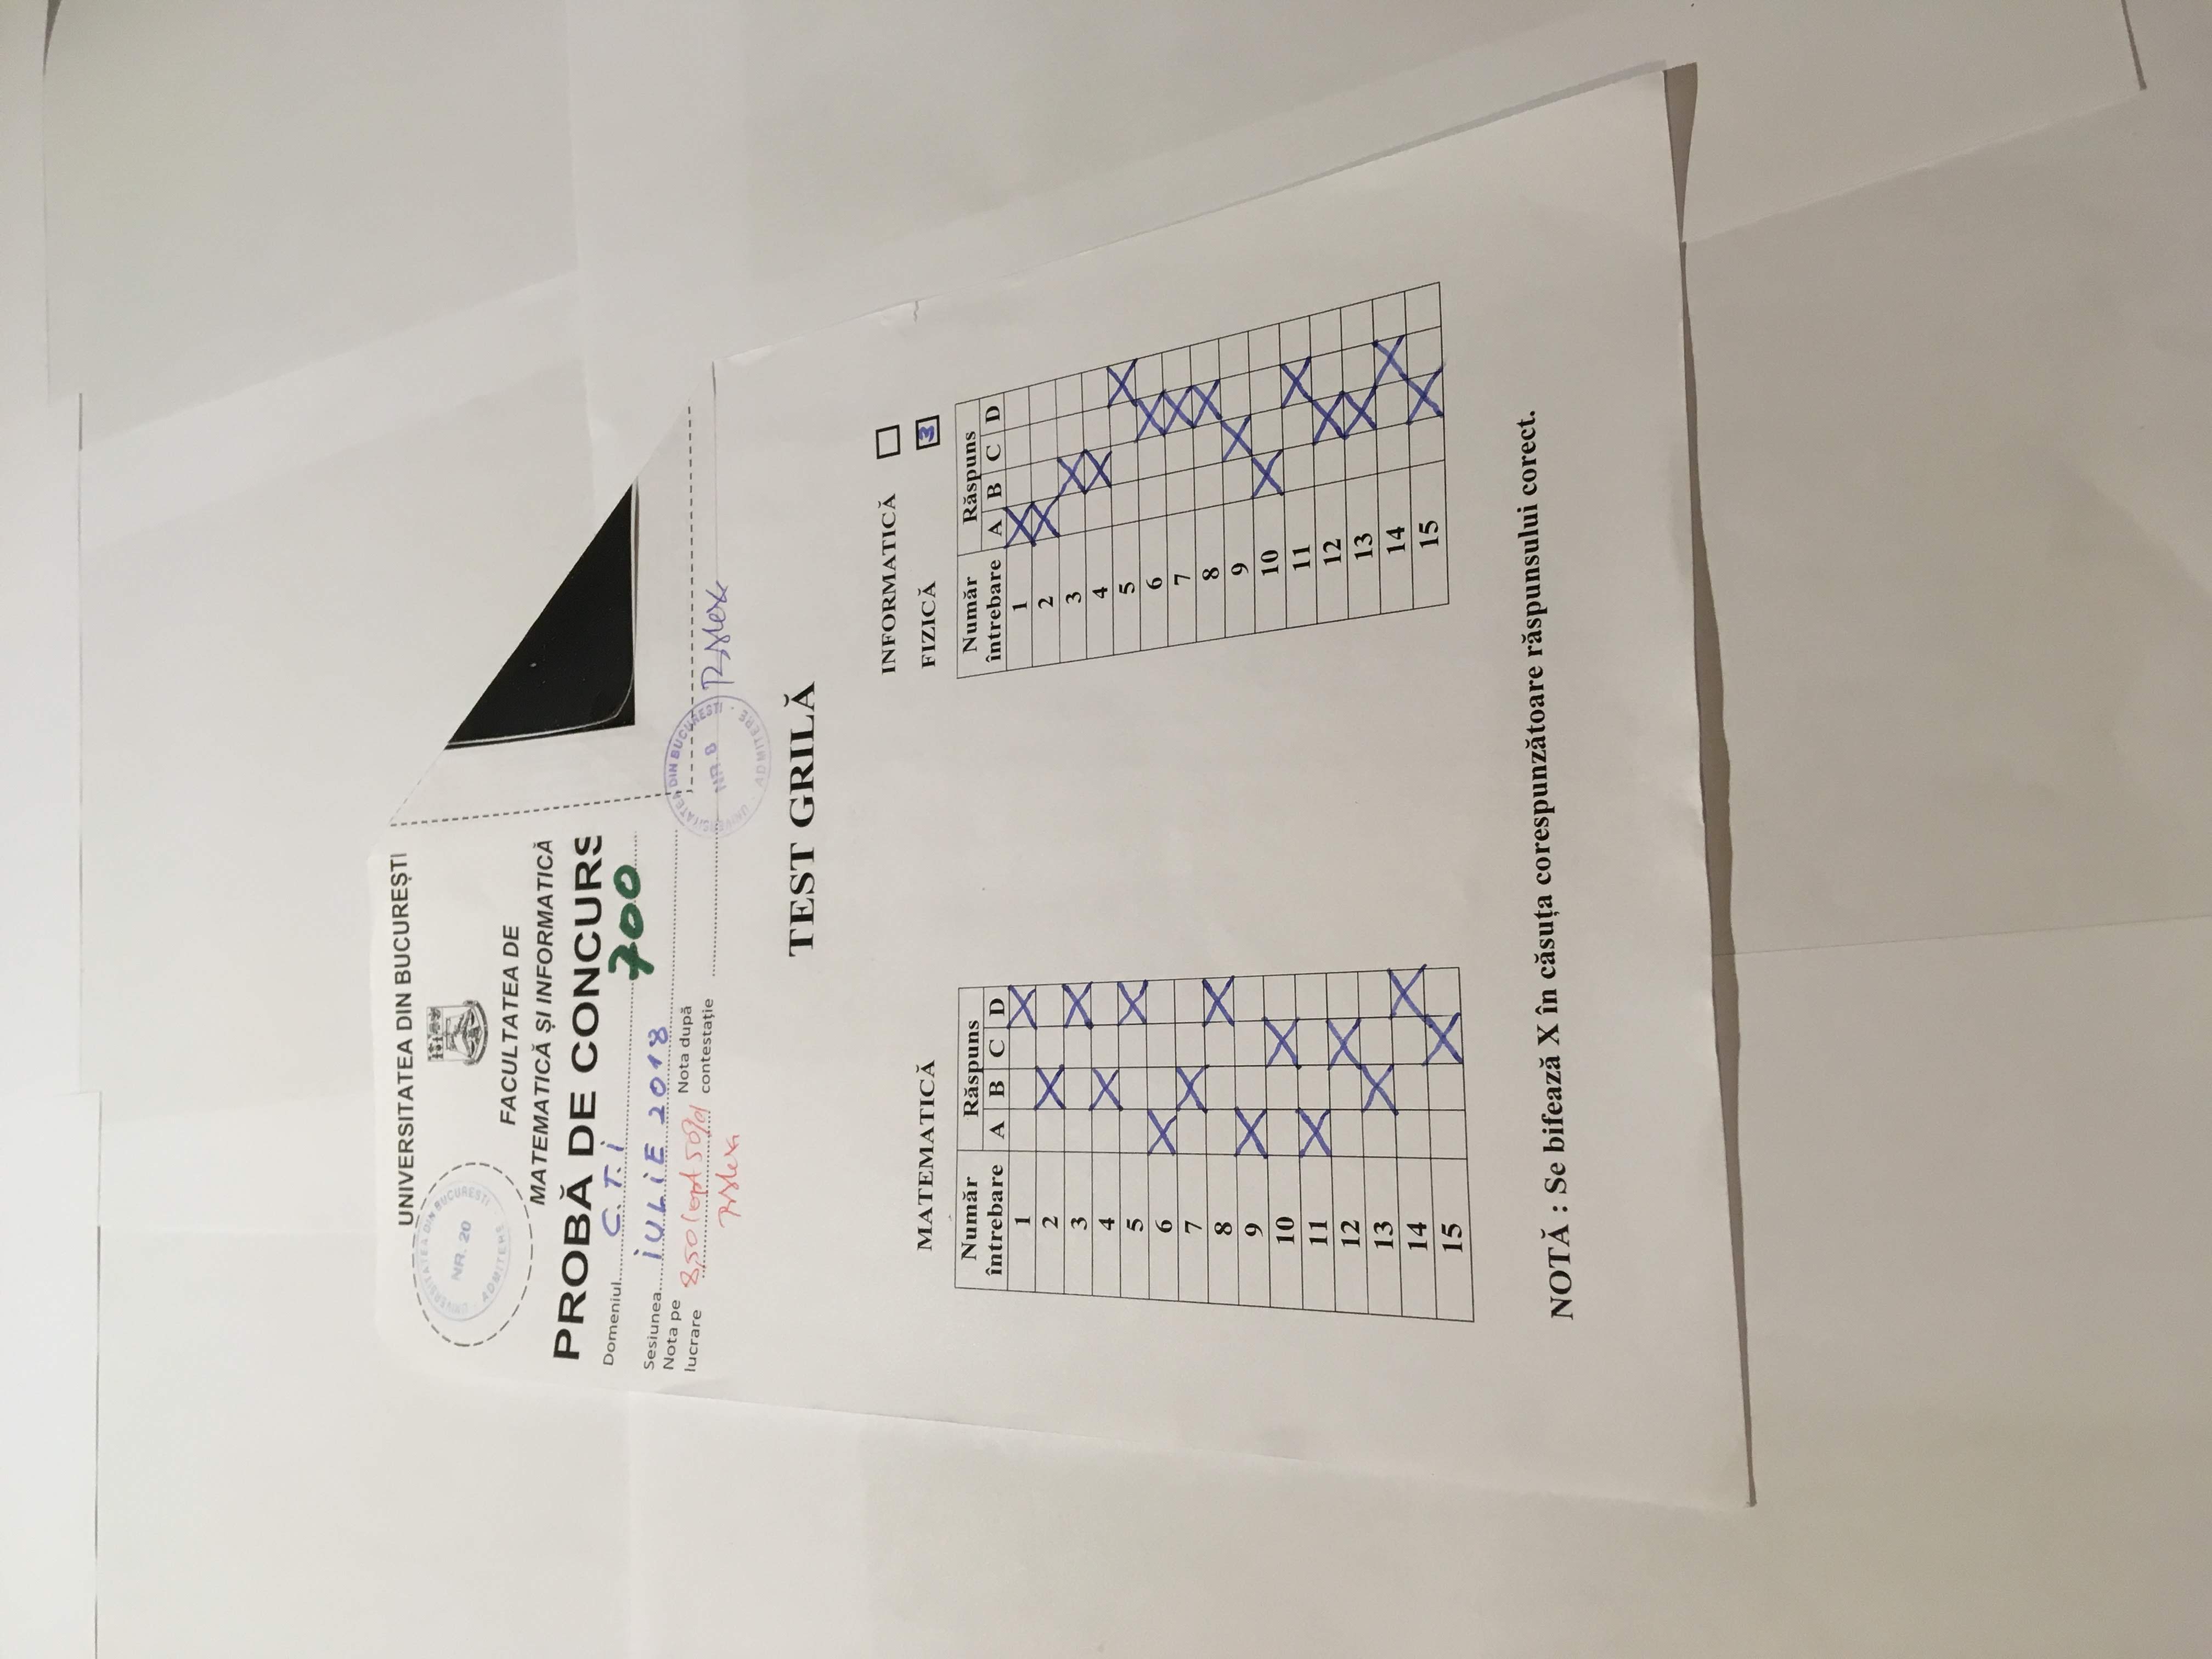 UNIVERSITATEA DIN BUCUREȘTI
UNIVERSITATEA DIN BUCUREȘTI
NR. 20
ADMITERE
FACULTATEA DE
MATEMATICĂ ȘI INFORMATICĂ
PROBĂ DE CONCURS
Domeniul.....C.T.I
700
Sesiunea....IULIE 2018
Nota pe lucrare 8,50 (opt 50%)
Nota după contestație
UNIVERSITATEA DIN BUCUREȘTI
NR. 8
ADMITERE
TEST GRILĂ
INFORMATICĂ
MATEMATICĂ
FIZICĂ 3
Număr întrebare Răspuns
A B C D
1 X
2 X
3 X
4 X
5 X
6 X
7 X
8 X
9 X
10 X
11 X
12 X
13 X
14 X
15 X
Număr întrebare Răspuns
A B C D
1 X
2 X
3 X
4 X
5 X
6 X
7 X
8 X
9 X
10 X
11 X
12 X
13 X
14 X
15 X
NOTĂ : Se bifează X în căsuța corespunzătoare răspunsului corect.